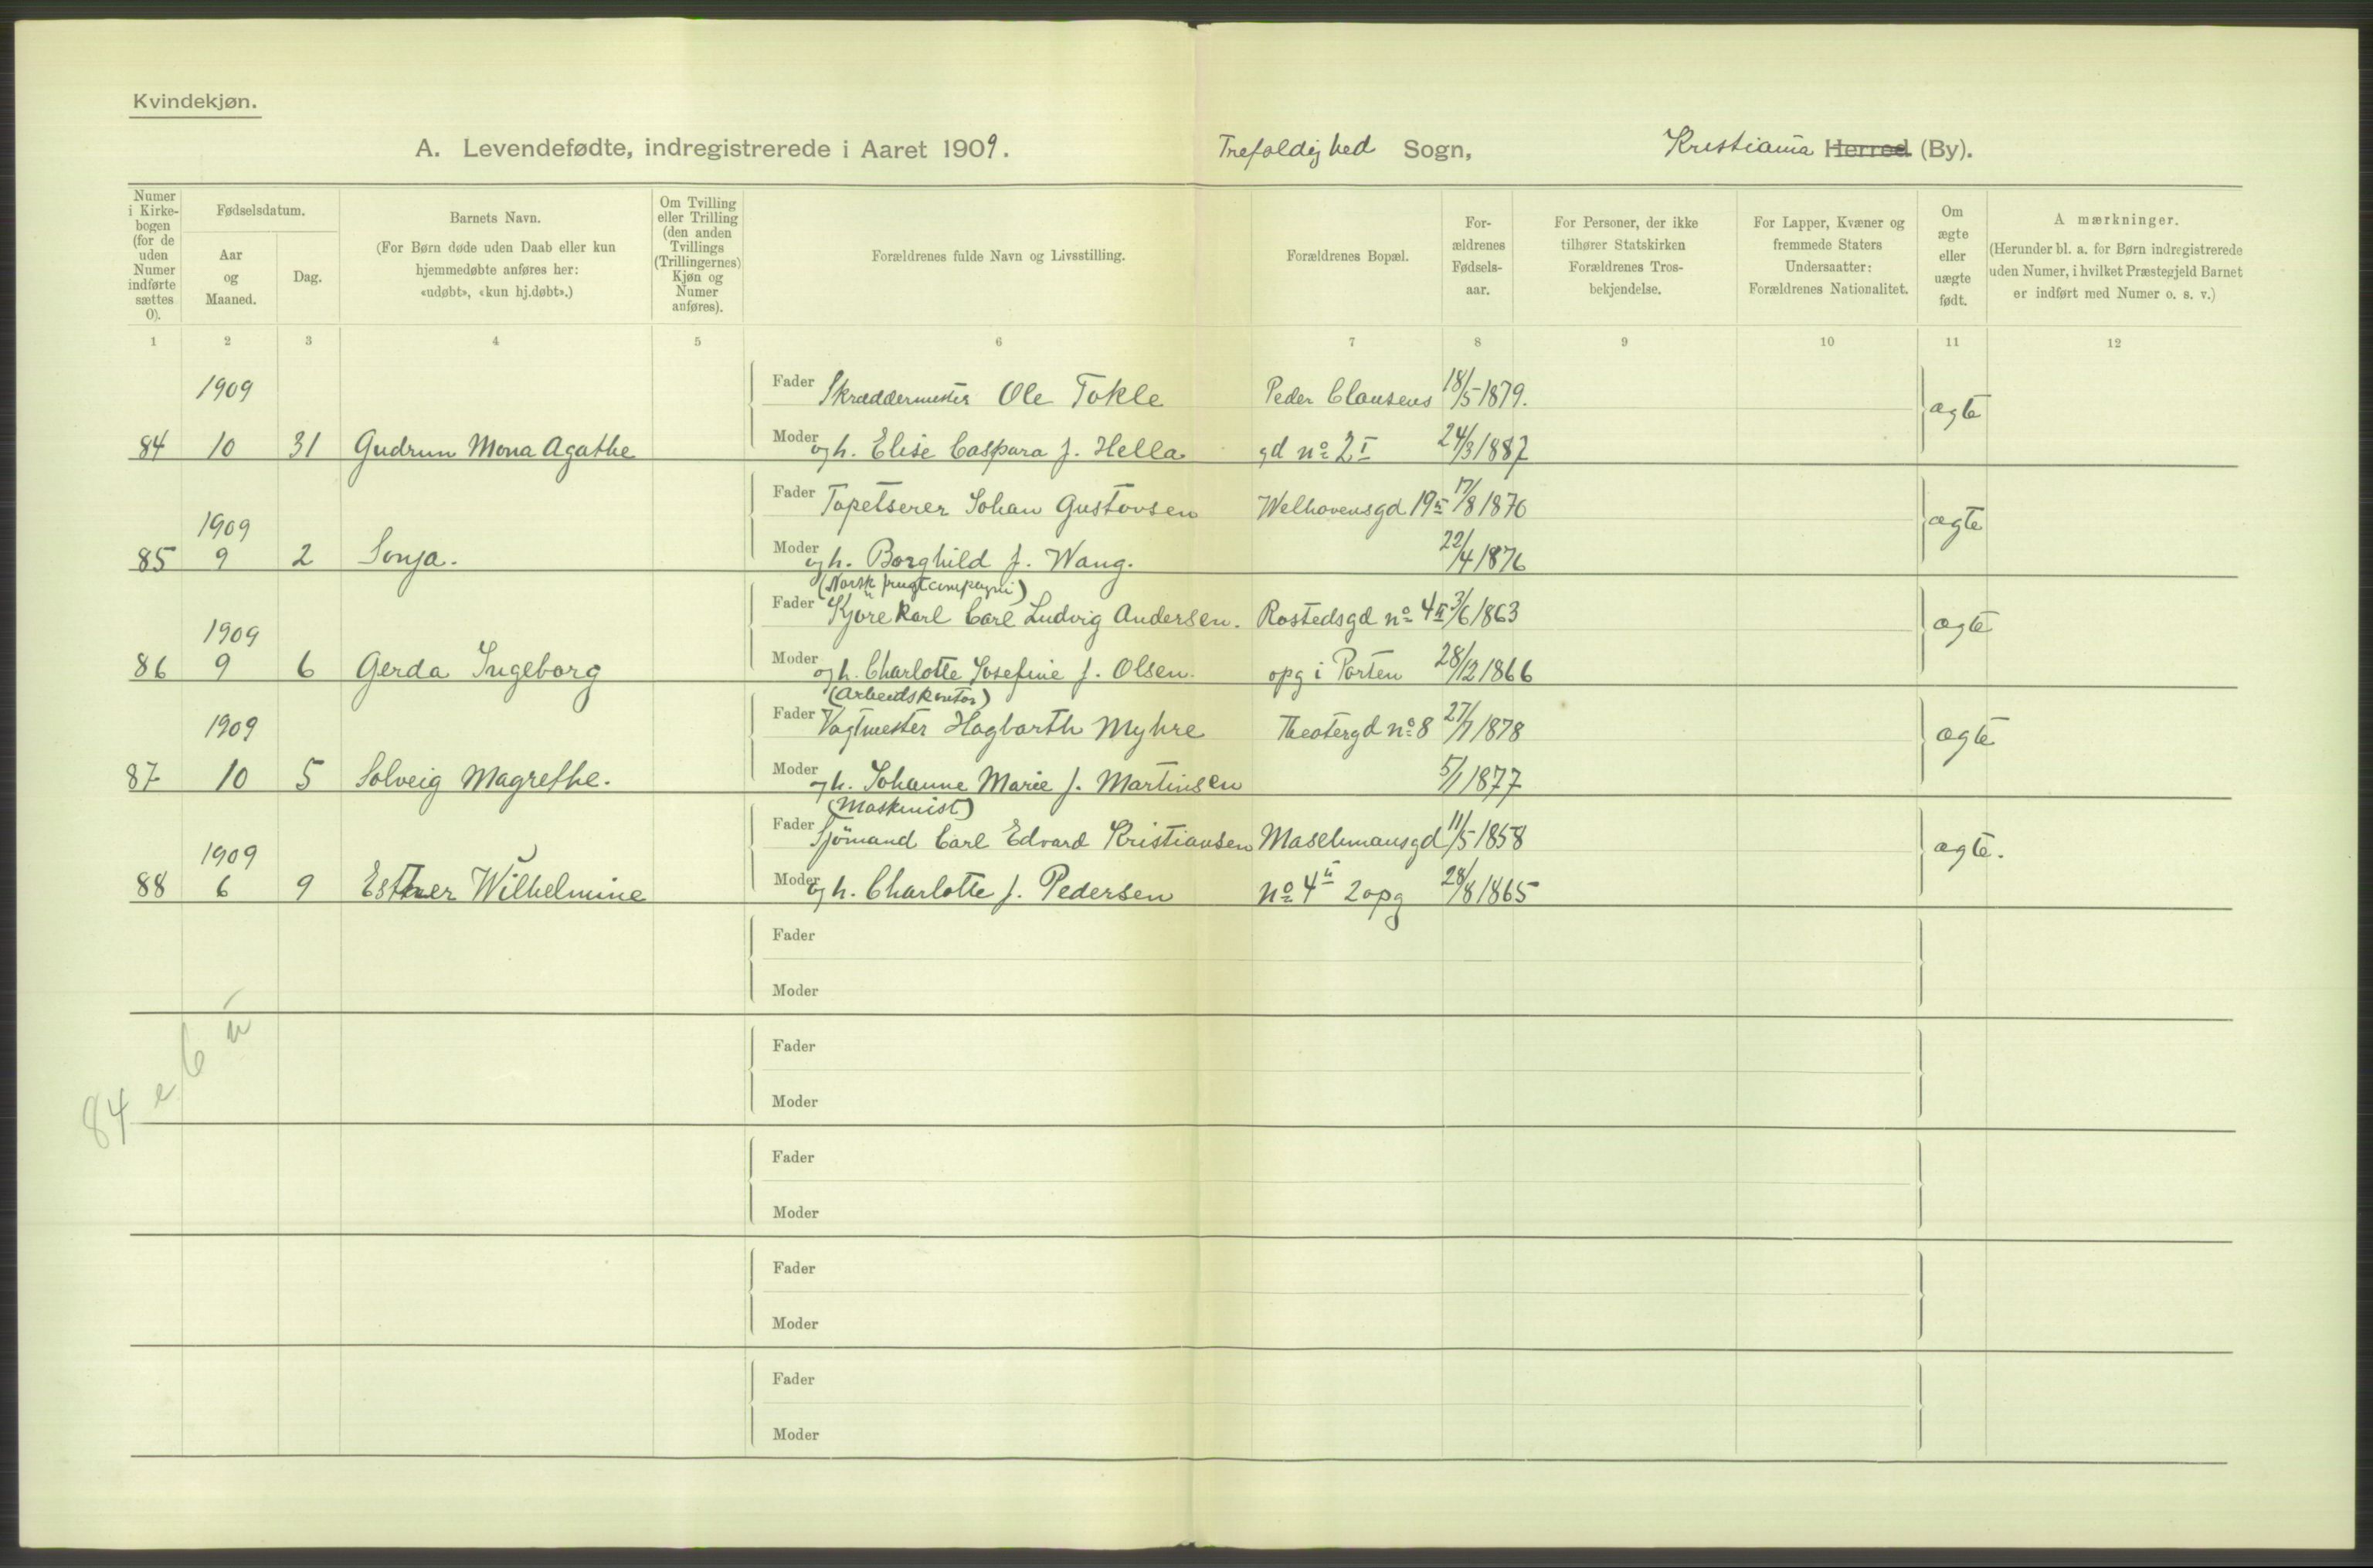 Kvindekjøn.
A. Levendefødte, indregistrerede i Aaret 1909. Trefoldighed Sogn, Kristiania Herred (By).
Numer i Kirkebogen (for de uden Numer indførte sættes 0).
Fødselsdatum.
Aar og Maaned.
Dag.
Barnets Navn.
(For Børn døde uden Daab eller kun hjemmedøbte anføres her: «udøbt», «kun hj.døbt».)
Om Tvilling eller Trilling (den anden Tvillings (Trillingernes) Kjøn og Numer anføres).
Forældrenes fulde Navn og Livsstilling.
Forældrenes Bopæl.
Forældrenes Fødselsaar.
For Personer, der ikke tilhører Statskirken Forældrenes Trosbekjendelse.
For Lapper, Kvæner og fremmede Staters Undersaatter: Forældrenes Nationalitet.
Om ægte eller uægte født.
A mærkninger.
(Herunder bl. a. for Børn indregistrerede uden Numer, i hvilket Præstegjeld Barnet er indført med Numer o. s. v.)
1 2 3 4 5 6 7 8 9 10 11 12
1909 Fader Skræddermester Ole Tokle Peder Clausens 18/5-1879. ægte
84 10 31 Gudrun Mona Agathe Moder og h. Elise Caspara f. Hella gd no 2 I 24/3 1887
1909 Fader Tapetserer Johan Gustavsen Welhavensgd 19 17/8 1876 ægte
85 9 2 Sonja. Moder og h. Borghild f. Wang. 22/4 1876
(Norsk frugtcompagni)
1909 Fader Kjørekarl Carl Ludvig Andersen. Rostedsgd no 4 II 3/6 1863 ægte
86 9 6 Gerda Ingeborg Moder og h. Charlotte Josefine f. Olsen. opg i Porten 28/12 1866
(Arbeidskontor)
1909 Fader Vagtmester Hagbarth Myhre Theatergd no 8 27/7 1878 ægte
87 10 5 Solveig Magrethe. Moder og h. Johanne Marie f. Martinsen 5/1 1877
(Maskinist)
1909 Fader Sjömand Carl Edvard Kristiansen Maschmansgd 11/5 1858 ægte.
88 6 9 Esther Wilhelmine Moder og h. Charlotte f. Pedersen no 4 II 2 opg 28/8 1865
Fader
Moder
Fader
Moder
84 e 6
Fader
Moder
Fader
Moder
Fader
Moder